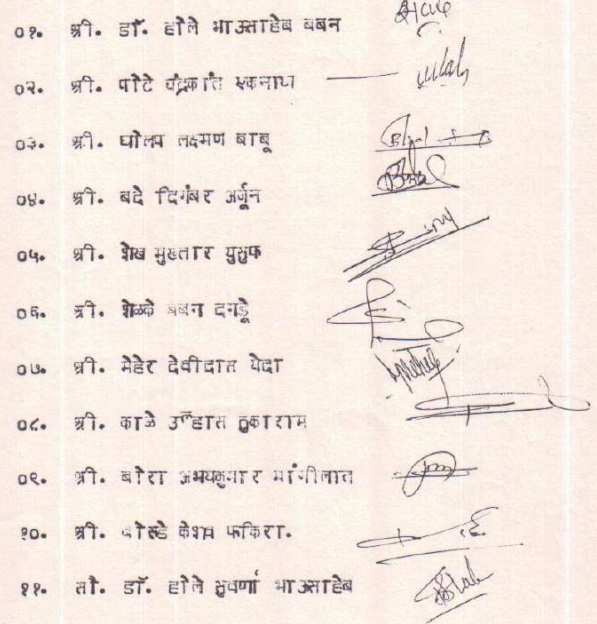 ०१. श्री. डॉ. होले भाऊसाहेब बबन
०२. श्री. पोटे चंद्रकांत एकनाथ
०३. श्री. घोलप लक्ष्मण बाबू
०४. श्री. बदे दिगंबर अर्जून
०५. श्री. शेख मुख्तार युसुफ
०६. श्री. शेळके बबन दगडू
०७. श्री. मेहेर देवीदास येदा
०८. श्री. काळे उल्हास तुकाराम
०९. श्री. बोरा अभयकुमार मांगीलाल
१०. श्री. केशव फकिरा.
११. सौ. डॉ. होले सुवर्णा भाऊसाहेब